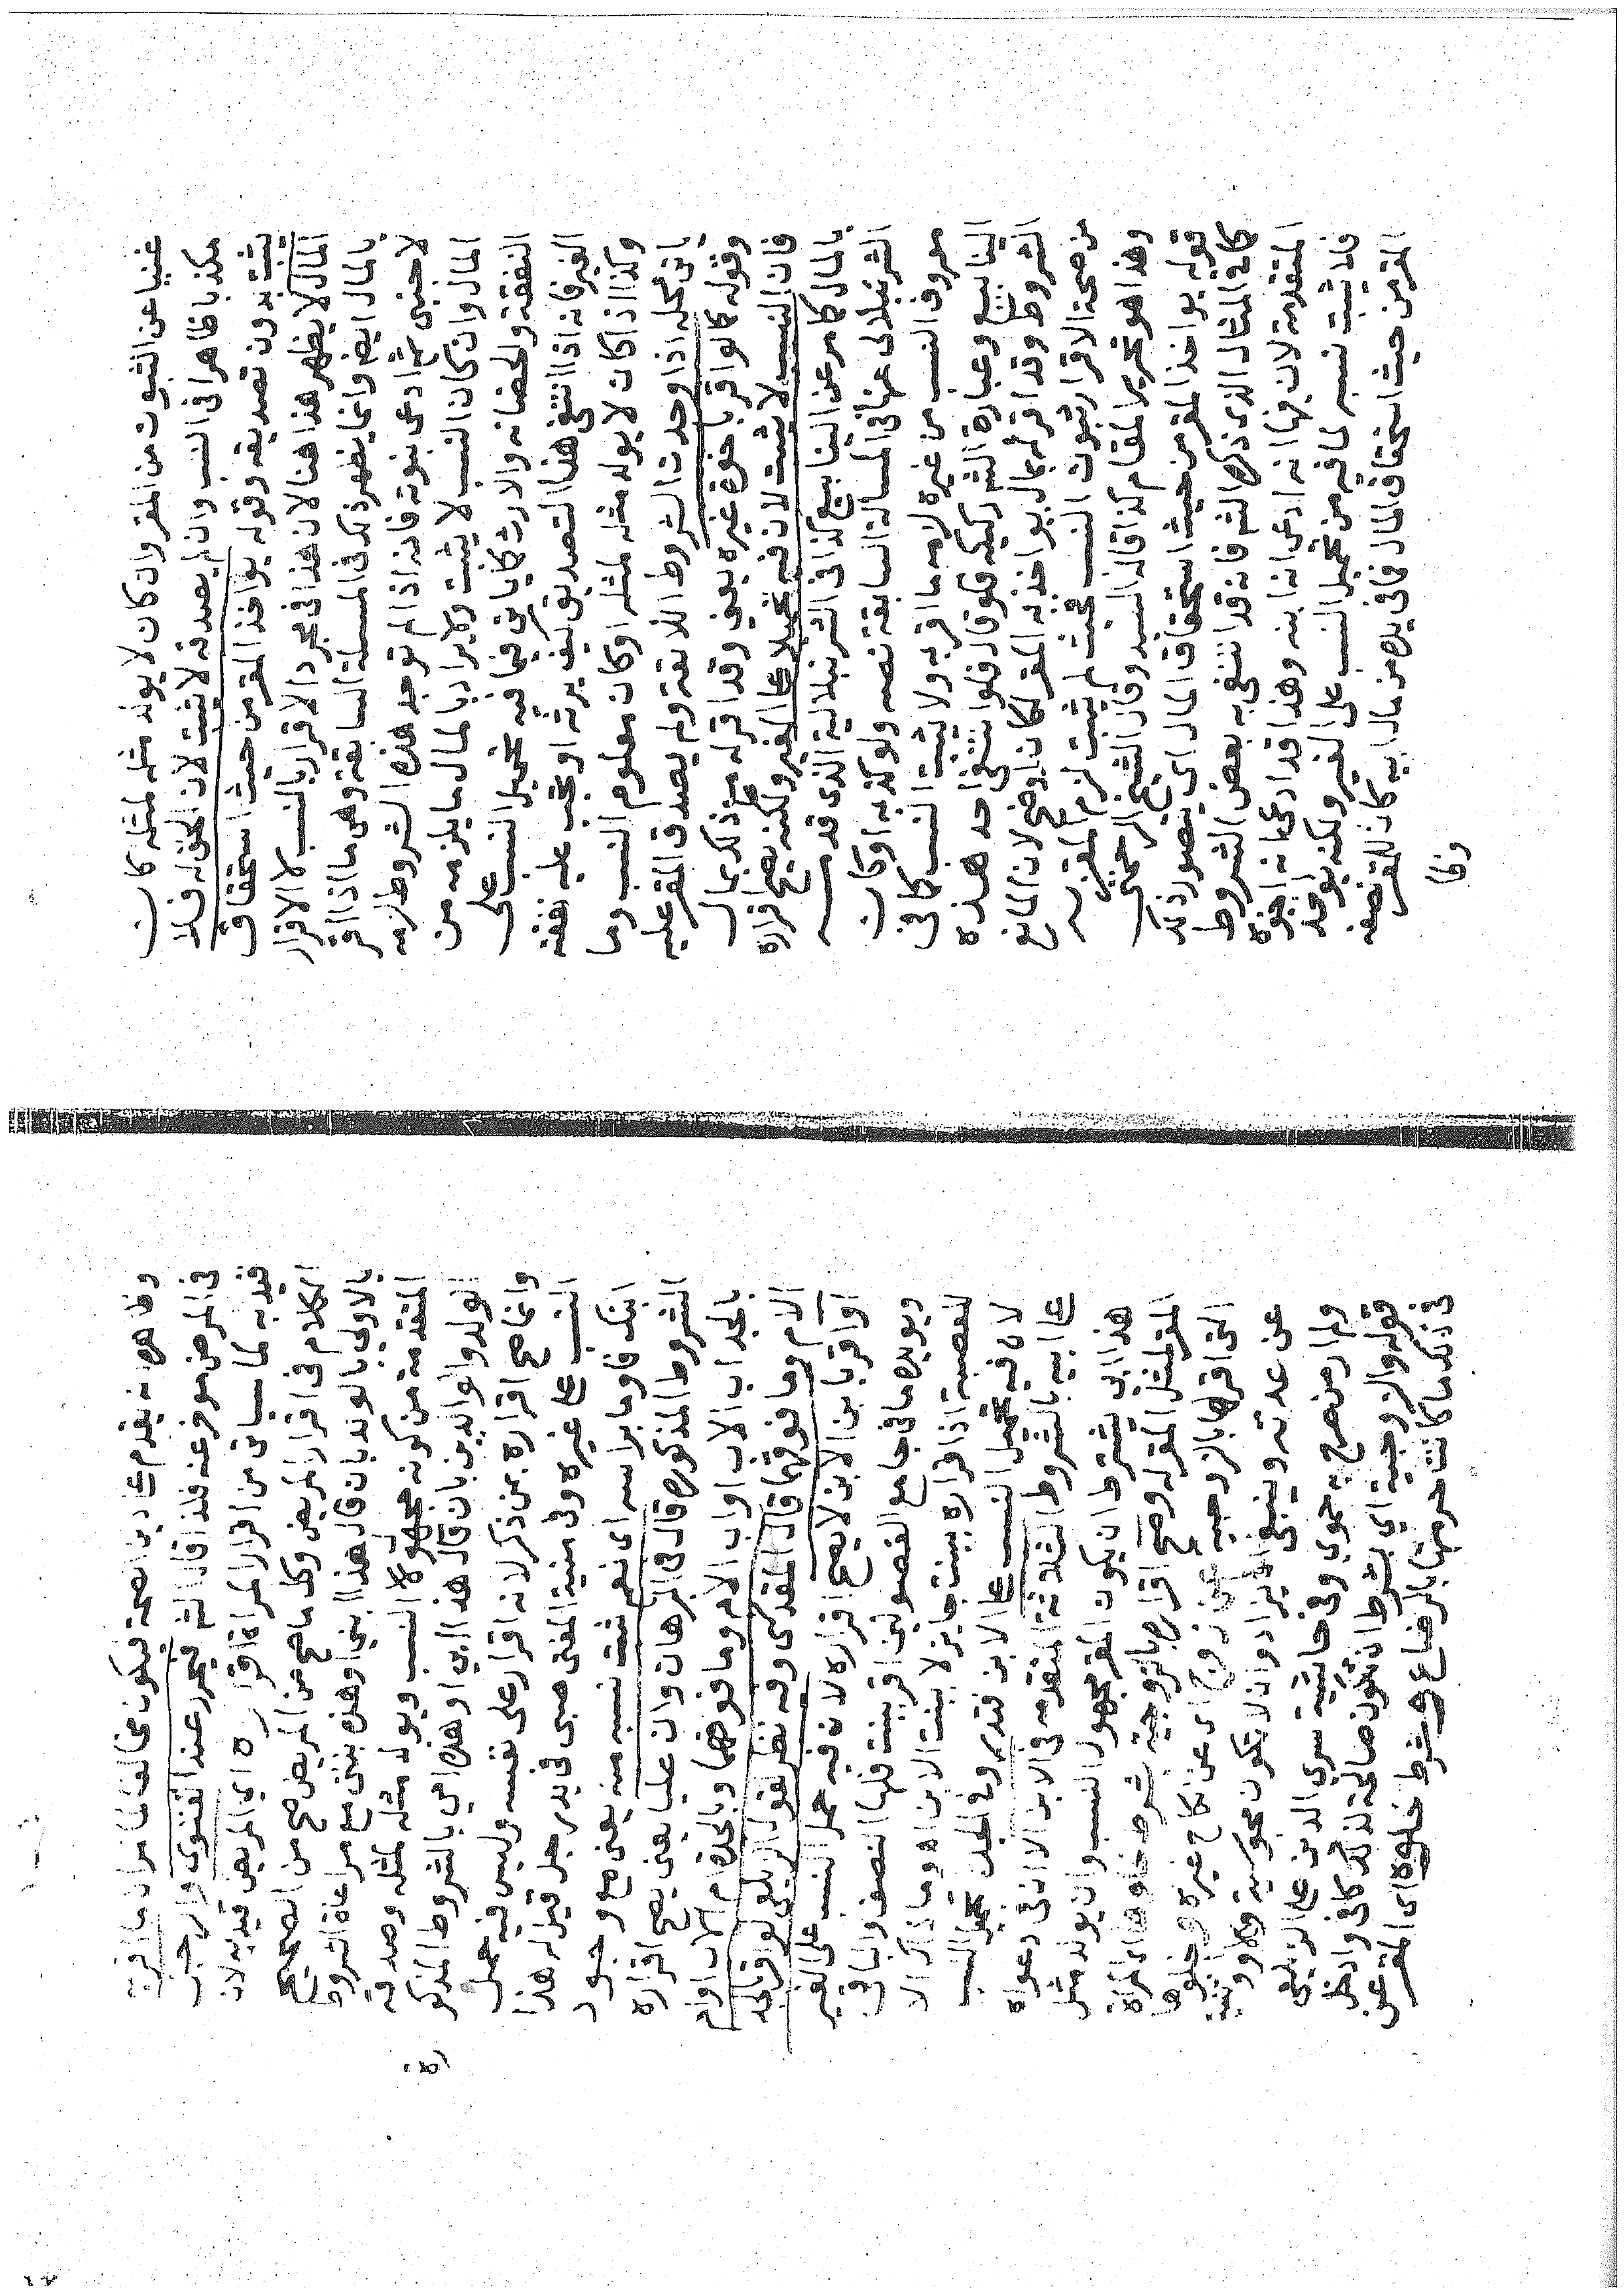 غنيا عن الثبوت من المقر وان كان لا يولد مثله لمثله كان
مكذبا ظاهرا في النسب وان لم يصدقه لا يثبت لان الحق له فلا
يثبت بدون تصديقه وقوله يواخذ المقر من حيث استحقاق
المال لا يظهر هذا هنا لان هذا في مجرد الاقرار بالنسب لا الاقرار
بالمال ايضا وانما يظهر ذلك في المسئلة السابقة وهي ما اذا اقر
لاجنبي ثم ادعى بنوته فانه اذا لم توجد هذه الشروط لزمه
المال وان كان النسب لا يثبت ولا يراد بالمال ما يلزمه من
النفقة والحضانة والارث كما ياتي فيما فيه تحميل النسب على
الغير فانه اذا انتفى هنا التصديق كيف يرثه او تجب عليه نفقته
وكذا اذا كان لا يولد مثله لمثله او كان معلوم النسب وما
ياتي محله اذا وجدت الشروط الثلاثة ولم يصدق المقر عليه
وقوله كما لو اقر باخوة غيره يعني وقد اقر له مع ذلك بمال
فان النسب لا يثبت لان فيه تحميلا على الغير ولكنه يصح اقراره
بالمال كما مر عن الينابيع كذا في الشرنبلالية الذي قدمه
الشرنبلالي عنها في المسالة السابقة نصه ولو كذبه او كان
معروف النسب من غيره لزمه ما اقر به ولا يثبت النسب كما في
الينابيع وعبارة الش ركيكة فلو قال فلو انتفى احد هذه
الشروط وقد اقر له بمال يواخذ به المقر لكان اوضح لان المانع
من صحة الاقرار ثبوت النسب فحيث لم يثبت لزم المقر به
وهذا هو تحرير المقام كذا قاله السيد وقال الشيخ الرحمتي
قوله يواخذ المقر من حيث استحقاق المال اي يتصور ذلك
كما في المثال الذي ذكره الش فانه قد انتفى به بعض الشروط
المتقدمة لان فيها انه ادعى انه ابنه وهذا قد ادعى انه اخوة
فلا يثبت نسبه لما فيه من تحميل النسب على الغير ولكنه يواخذ
المقر من حيث استحقاق المال ففي يده من مال ابيه كان للمقر نصفه
وظا
وظاهره انه يقدم على دين الصحة فيكون مخالفا لما مر ان ما اقر به
في المرض موخر عنه فلذا قال الش فيحرر عند الفتوى والرجل
قيد به لما سياتي من اقرار المراة اقراره اي المريض قيد به لان
الكلام في اقرار المريض وكل ما صح من المريض صح من الصحيح
بالاولى بالولد بان قال هذا ابني او هذه بنتي مع مراعاة الشروط
المتقدمة من كونه مجهول النسب ويولد مثله لمثله وصدقه
الولد والوالدين بان قال هذا ابي او هذه امي بالشروط المذكو
رة
وانما صح اقراره بمن ذكر لانه اقرار على نفسه وليس فيه حمل
النسب على غيره وفي منية المفتي صبي في يد رجل قيل له هذا
ابنك فاوما براسه اي نعم ثبت نسبه منه يعني مع وجود
الشروط المذكورة قال في البرهان وان عليا يعني يصح اقراره
بالجد اب الاب او اب الام وما فوقهما وبالجدة ام الاب او ام
الام وما فوقهما قال المقدسي وفيه نظر لقول الزيلعي لو اقر بالجد
او اقر بابن الابن لا يصح اقراره لان فيه حمل النسب على الغير
ويويده ما في جامع الفصولين اقر ببنت فلها النصف والباقي
للعصبة اذا اقراره ببنت جايز لا ببنت الابن اه وما ذاك الا
لان فيه تحميل النسب على الابن فتدبر وفي الجد تحميل النسب
على ابيه بالشروط الثلاثة المتقدمة في الابن الا ان في دعواه
هذا ابي يشترط ان يكون المقر مجهول النسب وان يولد مثل
المقر لمثل المقر له وصح اقراره بالزوجية بشرط خلوها اي المراة
التي اقر لها بالزوجية عن زوج اي عن نكاح غيره وخلوها
عن عدته وينبغي ان يزاد وان لا تكون مجوسية ولا وثنية
ولم ار من صرح به حموي وفي حاشية سري الدين على الزيلعي
قوله والزوجية اي بشرط ان تكون صالحة لذلك كما في وادخل
في ذلك ما كانت حرمتها بالرضاع وشرط خلوه اي المقر عن